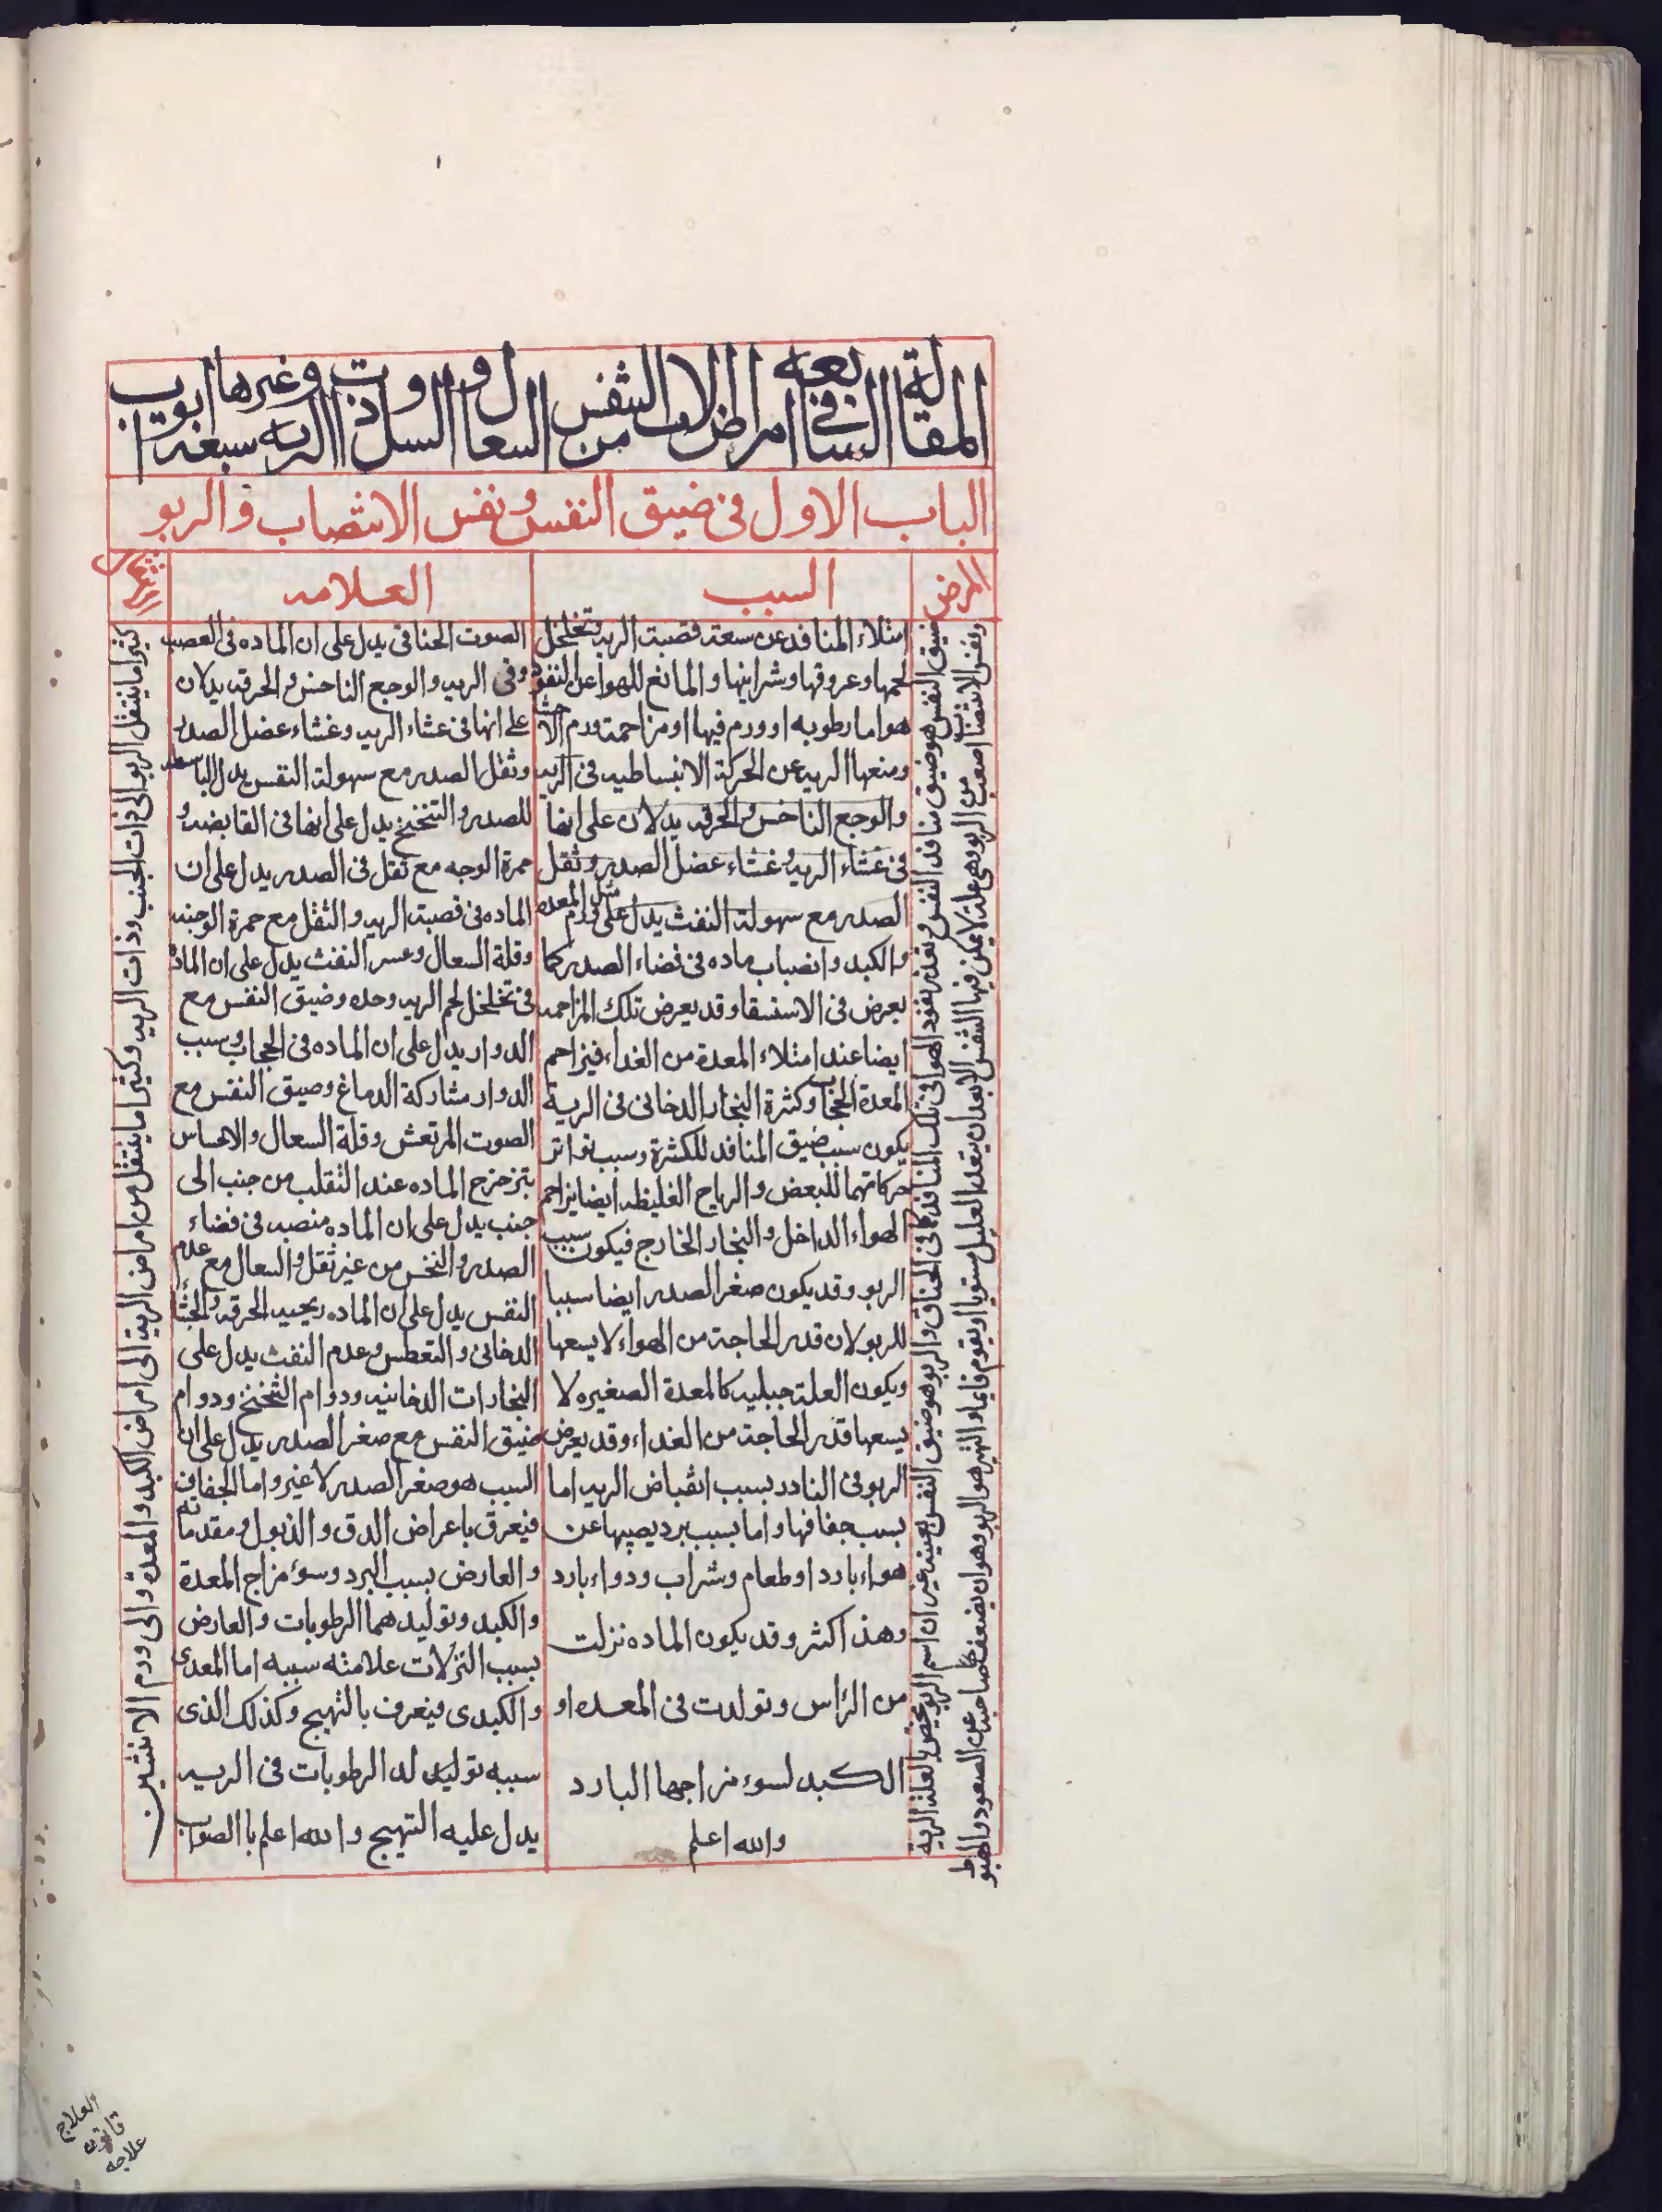 المقالة السابعة في امراض الات التنفس من السعال والسل وذات الرية وغيرها سبعة ابواب
الباب الاول في ضيق النفس ونفس الانتصاب والربو
المرض
السبب
العلامه
ضيق النفس هو ضيق منافد النفس وتعذر نفود الهوا في تلك المنافد كما في الخناق والربو هو ضيق النفس بعينه غير ان اسم الربو يختص بالعلة الرية
ونفس الانتصاب اصعب من الربو وهي علة لا يمكن فيها التنفس الا بعد ان يقعد العليل مستويا او يقوم قايما والبهر هو الربو وهو ان يضعف صاحبه عن الصعود والهبوط
امتلاء المنافد عن سعة قصبة الريه وتخلخل
لحمها وعروقها وشراينها والمانع للهوا عن النفود
هو اما رطوبه او ورم فيها او مزاحمة ورم الاحشا
ومنعها الريه عن الحركة الانبساطيه في الريه
والوجع الناخس والحرقه يدلان على انها
في غشاء الريه وغشاء عضل الصدر وثقل
الصدر مع سهولة النفث يدل على ورم مثل المعده
والكبد وانصباب ماده في فضاء الصدر كما
يعرض في الاستسقا وقد يعرض تلك المزاحمه
ايضا عند امتلاء المعدة من الغداء فيزاحم
المعدة الحجاب وكثرة البخار الدخاني في الرية
يكون سبب ضيق المنافد للكثرة وسبب تواتر
حركاتهما للبعض والرياح الغليظه ايضا يزاحم
الهواء الداخل والبخار الخارج فيكون سبب
الربو وقد يكون صغر الصدر ايضا سببا
للربو لان قدر الحاجة من الهواء لا يسعها
ويكون العلة جبليه كالمعدة الصغيره لا
يسعها قدر الحاجة من الغداء وقد يعرض
الربو في النادر بسبب انقباض الريه اما
بسبب جفافها واما بسبب برد يصيبها عن
هواء بارد او طعام وشراب ودواء بارد
وهذا اكثر وقد يكون الماده نزلت
من الراس وتولدت في المعده او
الكبد لسوء مزاجها البارد
والله اعلم
الصوت الخناقي يدل على ان الماده في العصب
وفي الريه والوجع الناخس والحرقه يدلان
على انها في غشاء الريه وغشاء عضل الصدر
وثقل الصدر مع سهولة النفس يدل
للصدر والتنخنخ يدل على انها في القابضه و
حمرة الوجه مع ثقل في الصدر يدل على ان
الماده في قصبة الريه والثقل مع حمرة الوجنه
وقلة السعال وعسر النفث يدل على ان الماده
في تخلخل لحم الريه وحده وضيق النفس مع
الدوار يدل على ان الماده في الحجاب وسبب
الدوار مشاركة الدماغ وضيق النفس مع
الصوت المرتعش وقلة السعال والاحساس
بتزحزح الماده عند التقلب من جنب الى
جنب يدل على ان الماده منصبه في فضاء
الصدر والنخس من غير ثقل والسعال مع عدم
النفس يدل على ان الماده ريحيه الحرقه والجشا
الدخاني والتعطس وعدم النفث يدل على
البخارات الدخانيه ودوام التنخنخ ودوام
ضيق النفس مع صغر الصدر يدل على ان
السبب هو صغر الصدر لا غير واما الجفافي
فيعرف باعراض الدق والذبول ومقدماته
والعارض بسبب البرد وسوء مزاج المعدة
والكبد وتوليدهما الرطوبات والعارض
بسبب النزلات علامته سببه اما المعدي
والكبدي فيعرف بالتهيج وكذلك الذي
سببه توليد له الرطوبات في الريه
يدل عليه التهيج والله اعلم با الصواب
كثيرا ما ينتقل الربو الى ذات الجنب وذات الريه وكثيرا ما ينتقل من امراض الرية الى امراض الكبد والمعدة والى ورم الانثيين
العلاج
قانون
علاجه